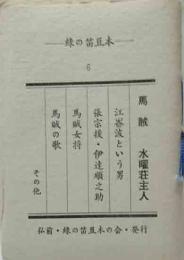 緑の笛豆本
6
馬賊 水曜荘主人
江崙波という男
張宗援・伊達順之助
馬賊女将
馬賊の歌
その他
弘前・緑の笛豆本の会・発行